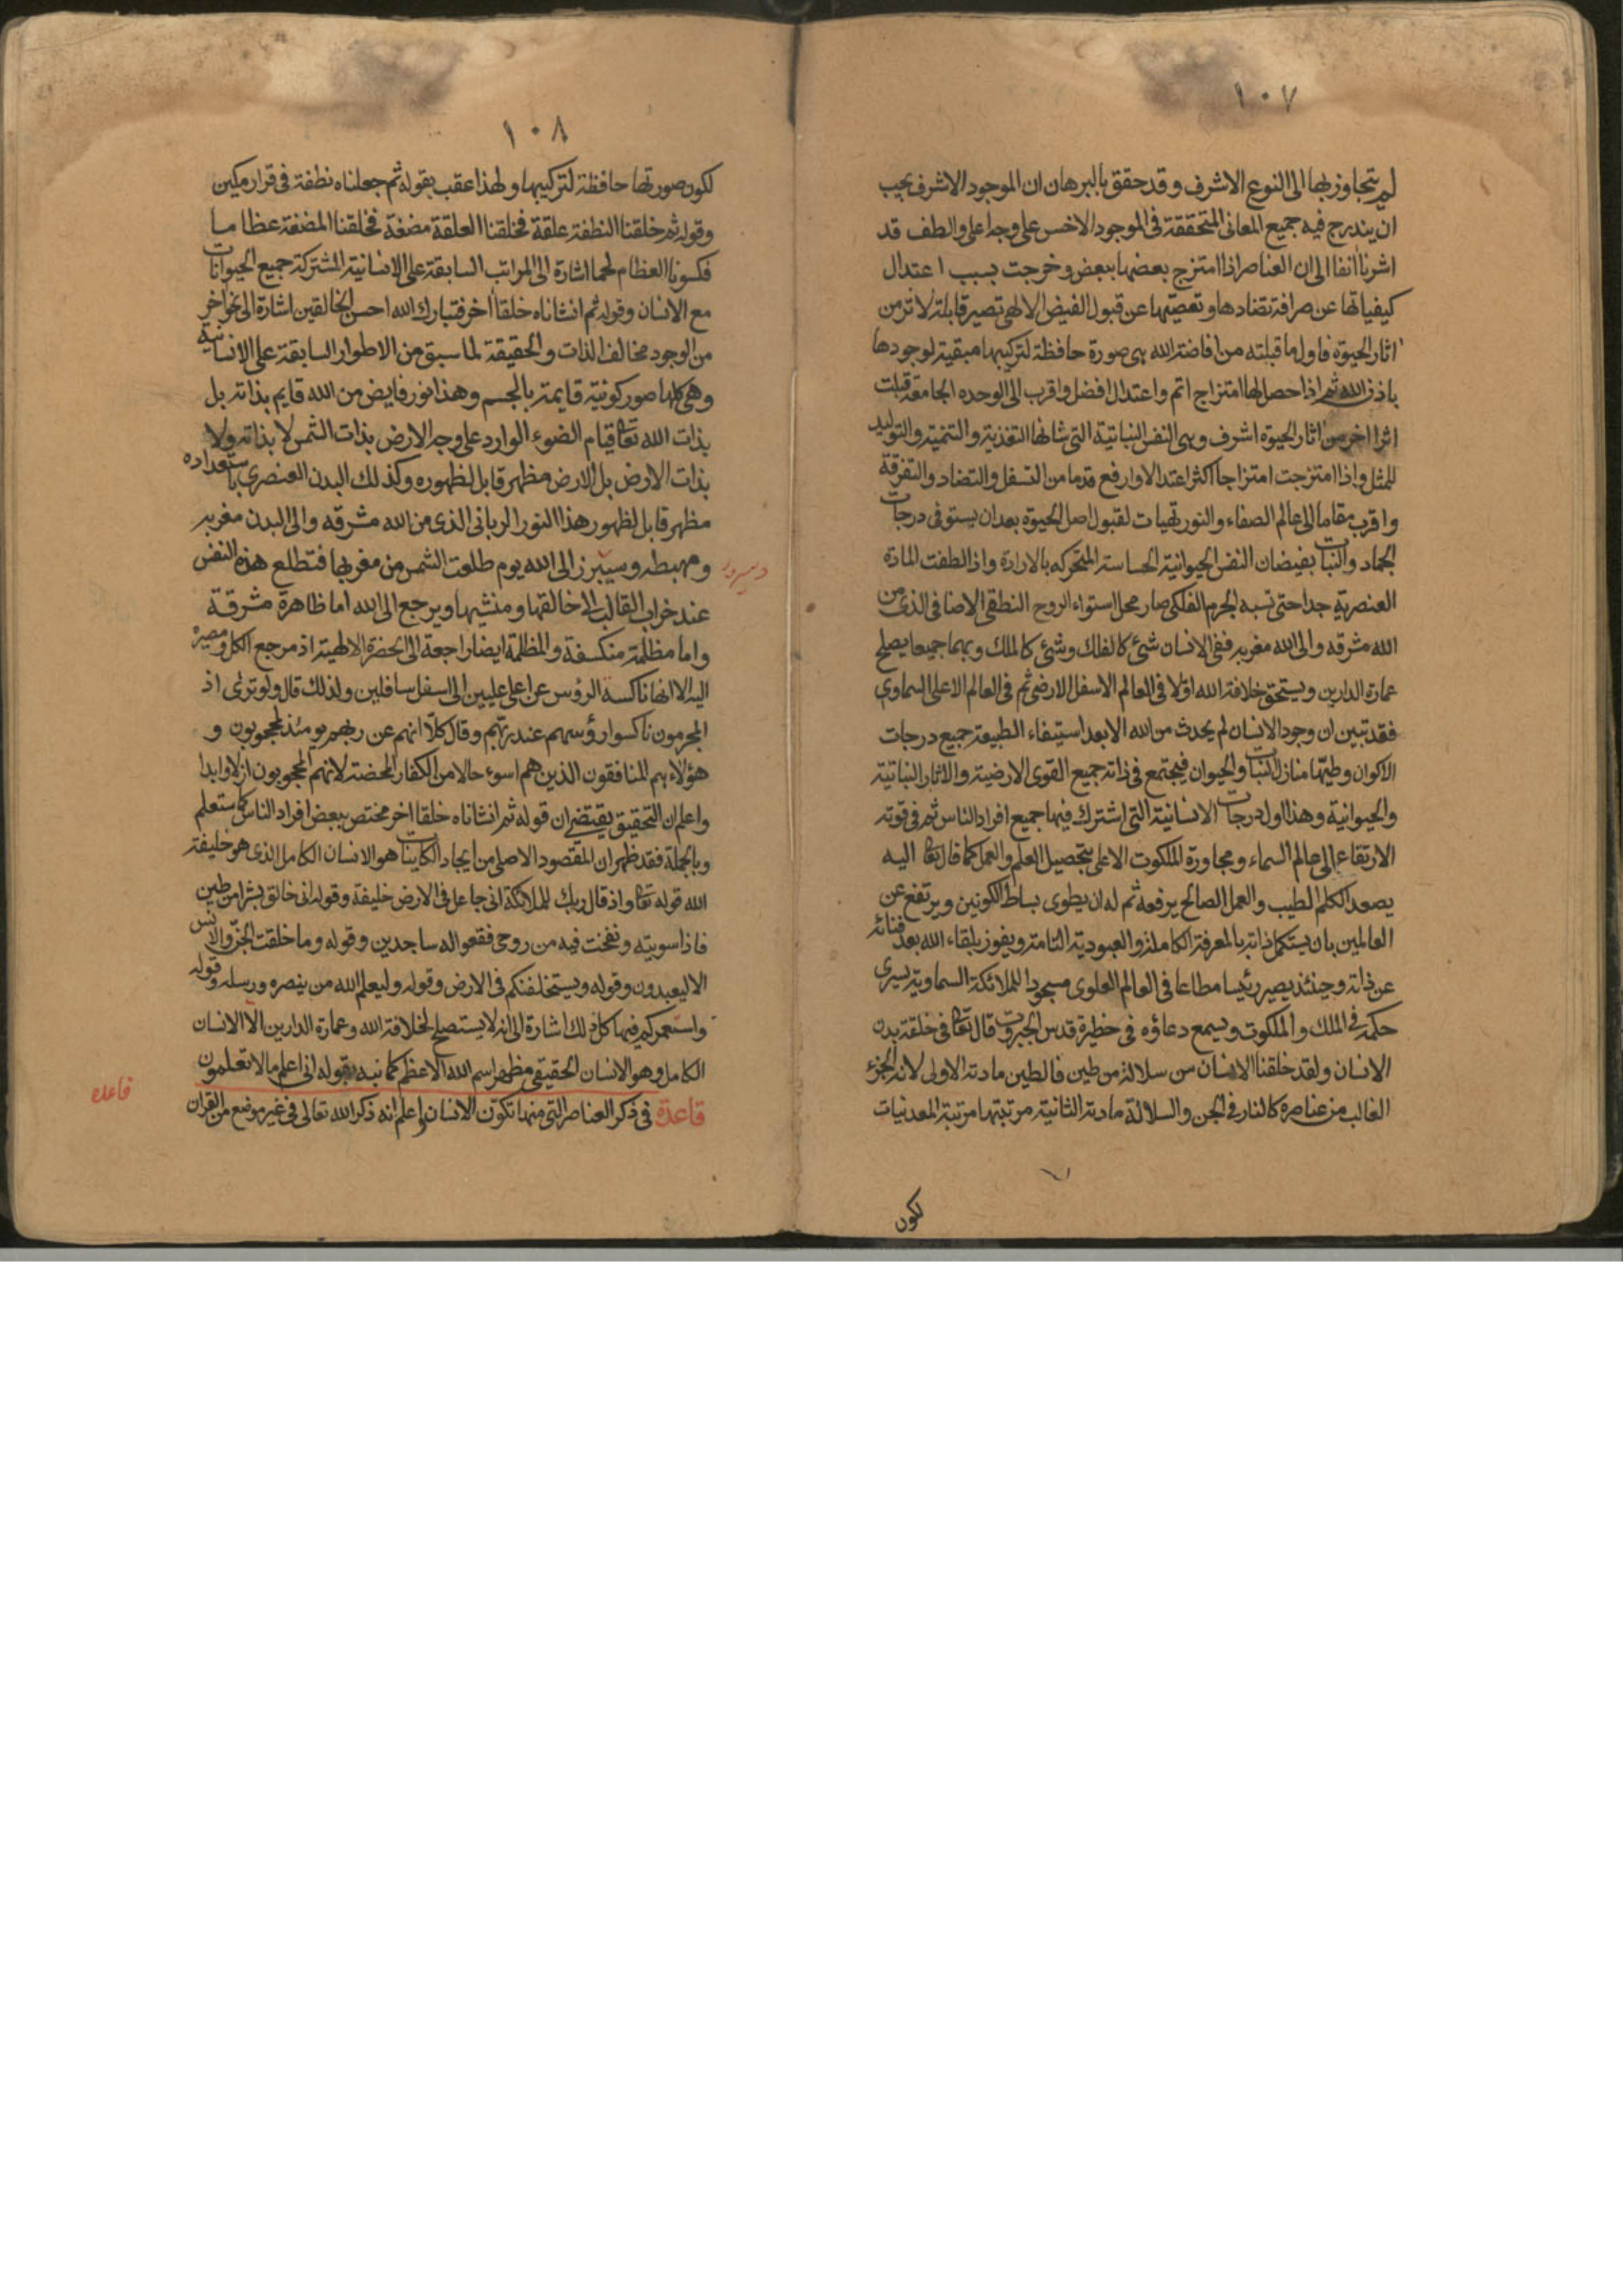 ١٠٧
لم يتجاوز بها الى النوع الاشرف وقد حقق بالبرهان ان الموجود الاشرف يجب
ان يندرج فيه جميع المعانى المتحققة فى الموجود الاخس على وجه اعلى والطف قد
اشرنا انفا الى ان العناصر اذا امتزج بعضها ببعض وخرجت بسبب اعتدال
كيفياتها عن صرافة تضادها وتعصيها عن قبول الفيض الالهى تصير قابلة لاثر من
اثار الحيوة فاول ما قبلته من افاضة الله هى صورة حافظة لتركيبها مبقية لوجودها
باذن الله ثم اذا حصل لها امتزاج اتم واعتدال افضل واقرب الى الوحده الجامعة قبلت
اثرا اخر من اثار الحيوة اشرف وهى النفس النباتية التى شانها التغذية والتنمية والتوليد
للمثل واذا امتزجت امتزاجا اكثر اعتدالا وارفع قدما من التسفل والتضاد والتفرقة
واقرب مقاما الى عالم الصفاء والنور تهيات لقبول اصل الحيوة بعد ان يستوفى درجات
الجماد والنبات بفيضان النفس الحيوانية الحساسة المتحركه بالارادة واذا لطفت المادة
العنصرية جدا حتى تسبه الجرم الفلكى صار محل استواء الروح النطقى الاضافى الذى من
الله مشرقه والى الله مغربه ففى الانسان شئ كالفلك وشئ كالملك وبهما جميعا يصلح
عمارة الدارين ويستحق خلافة الله اولا فى العالم الاسفل الارضى ثم فى العالم الاعلى السماوى
فقد تبين ان وجود الانسان لم يحدث من الله الا بعد استيفاء الطبيعة جميع درجات
الاكوان وطيها منازل النبات والحيوان فيجتمع فى ذاته جميع القوى الارضية والاثار النباتية
والحيوانية وهذا اول درجات الانسانية التى اشترك فيها جميع افراد الناس ثم فى قوته
الارتقاء الى عالم السماء ومجاورة الملكوت الاعلى بتحصيل العلم والعمل كما قال تعا اليه
يصعد الكلم الطيب والعمل الصالح يرفعه ثم له ان يطوى بساط الكونين ويرتفع عن
العالمين بان يستكمل ذاته بالمعرفة الكاملة والعبودية التامة ويفوز بلقاء الله بعد فنائه
عن ذاته وحينئذ يصير رئيسا مطاعا فى العالم العلوى مسجودا للملائكة السماوية يسرى
حكمه فى الملك والملكوت ويسمع دعاؤه فى حظيرة قدس الجبروت قال تعا فى خلقة بدن
الانسان ولقد خلقنا الانسان من سلالة من طين فالطين مادته الاولى لانه الجزء
الغالب من عناصره كالنار فى الجن والسلالة مادته الثانية مرتبتها مرتبة المعدنيات
لكون
١٠٨
لكون صورتها حافظة لتركيبها ولهذا عقب بقوله ثم جعلناه نطفة فى قرار مكين
وقوله ثم خلقنا النطفة علقة فخلقنا العلقة مضغة فخلقنا المضغة عظاما
فكسونا العظام لحما اشارة الى المراتب السابقة على الانسانية المشتركة جميع الحيوانات
مع الانسان وقوله ثم انشاناه خلقا اخر فتبارك الله احسن الخالقين اشارة الى نحو اخر
من الوجود مخالف الذات والحقيقة لما سبق من الاطوار السابقة على الانسانية
وهى كلها صور كونية قايمة بالجسم وهذا نور فايض من الله قايم بذاته بل
بذات الله تعا قيام الضوء الوارد على وجه الارض بذات الشمس لا بذاته ولا
بذات الارض بل الارض مظهر قابل لظهوره وكذلك البدن العنصرى باستعداده
مظهر قابل لظهور هذا النور الربانى الذى من الله مشرقه والى البدن مغربه
ومهبطه وسيبرز الى الله يوم طلعت الشمس من مغربها فتطلع هذه النفس
عند خراب القالب الى خالقها ومنشيها ويرجع الى الله اما ظاهرة مشرقة
واما مظلمة منكسفة والمظلمة ايضا راجعة الى الحضرة الالهية اذ مرجع الكل ومصيره
اليه الا انها ناكسه الرؤس عن اعلى عليين الى اسفل سافلين ولذلك قال ولو ترى اذ
المجرمون ناكسوا رؤسهم عند ربهم وقال كلا انهم عن ربهم يومئذ لمحجوبون و
هؤلاء هم المنافقون الذين هم اسوء حالا من الكفار المحضة لانهم المحجوبون ازلا وابدا
واعلم ان التحقيق يقتضى ان قوله ثم انشاناه خلقا اخر مختص ببعض افراد الناس كما ستعلم
وبالجملة فقد ظهر ان المقصود الاصلى من ايجاد الكاينات هو الانسان الكامل الذى هو خليفة
الله قوله تعا واذ قال ربك للملائكة انى جاعل فى الارض خليفة وقوله انى خالق بشرا من طين
فاذا سويته ونفخت فيه من روحى فقعوا له ساجدين وقوله وما خلقت الجن والانس
الا ليعبدون وقوله ويستخلفنكم فى الارض وقوله وليعلم الله من ينصره ورسله وقوله
واستعمركم فيها كل ذلك اشارة الى انه لا يستصلح لخلافة الله وعمارة الدارين الا الانسان
الكامل وهو الانسان الحقيقى مظهر اسم الله الاعظم كما نبه بقوله انى اعلم ما لا تعلمون
قاعدة فى ذكر العناصر التى منها تكون الانسان اعلم انه ذكر الله تعالى فى غير موضع من القران
قاعده